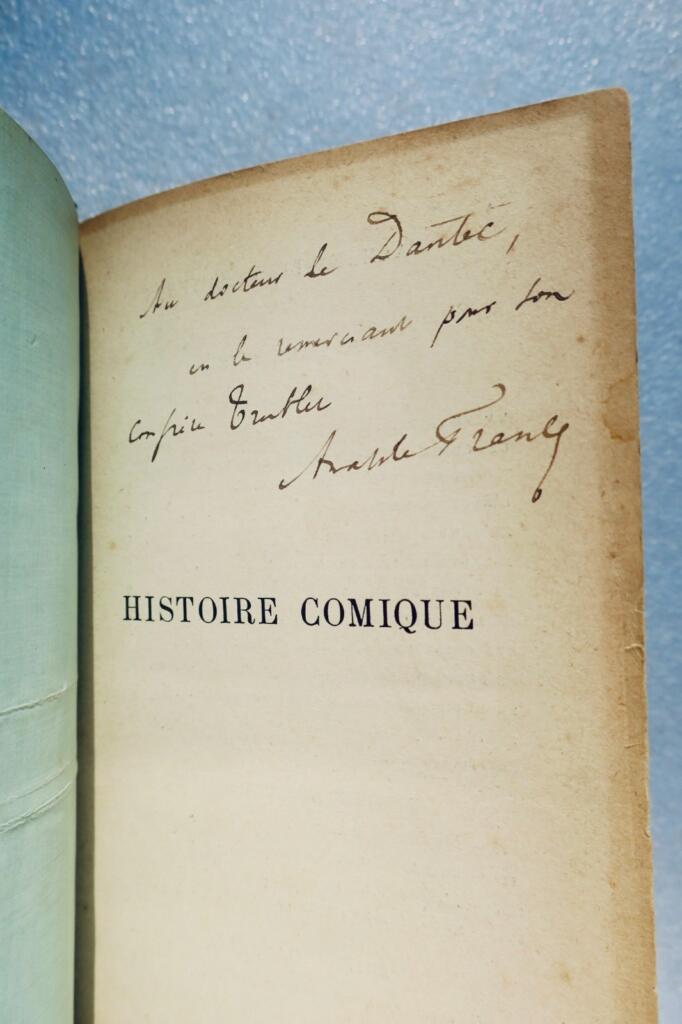 Au docteur le Dantec,
en le remerciant pour son
confrère Trublet
Anatole France
HISTOIRE COMIQUE